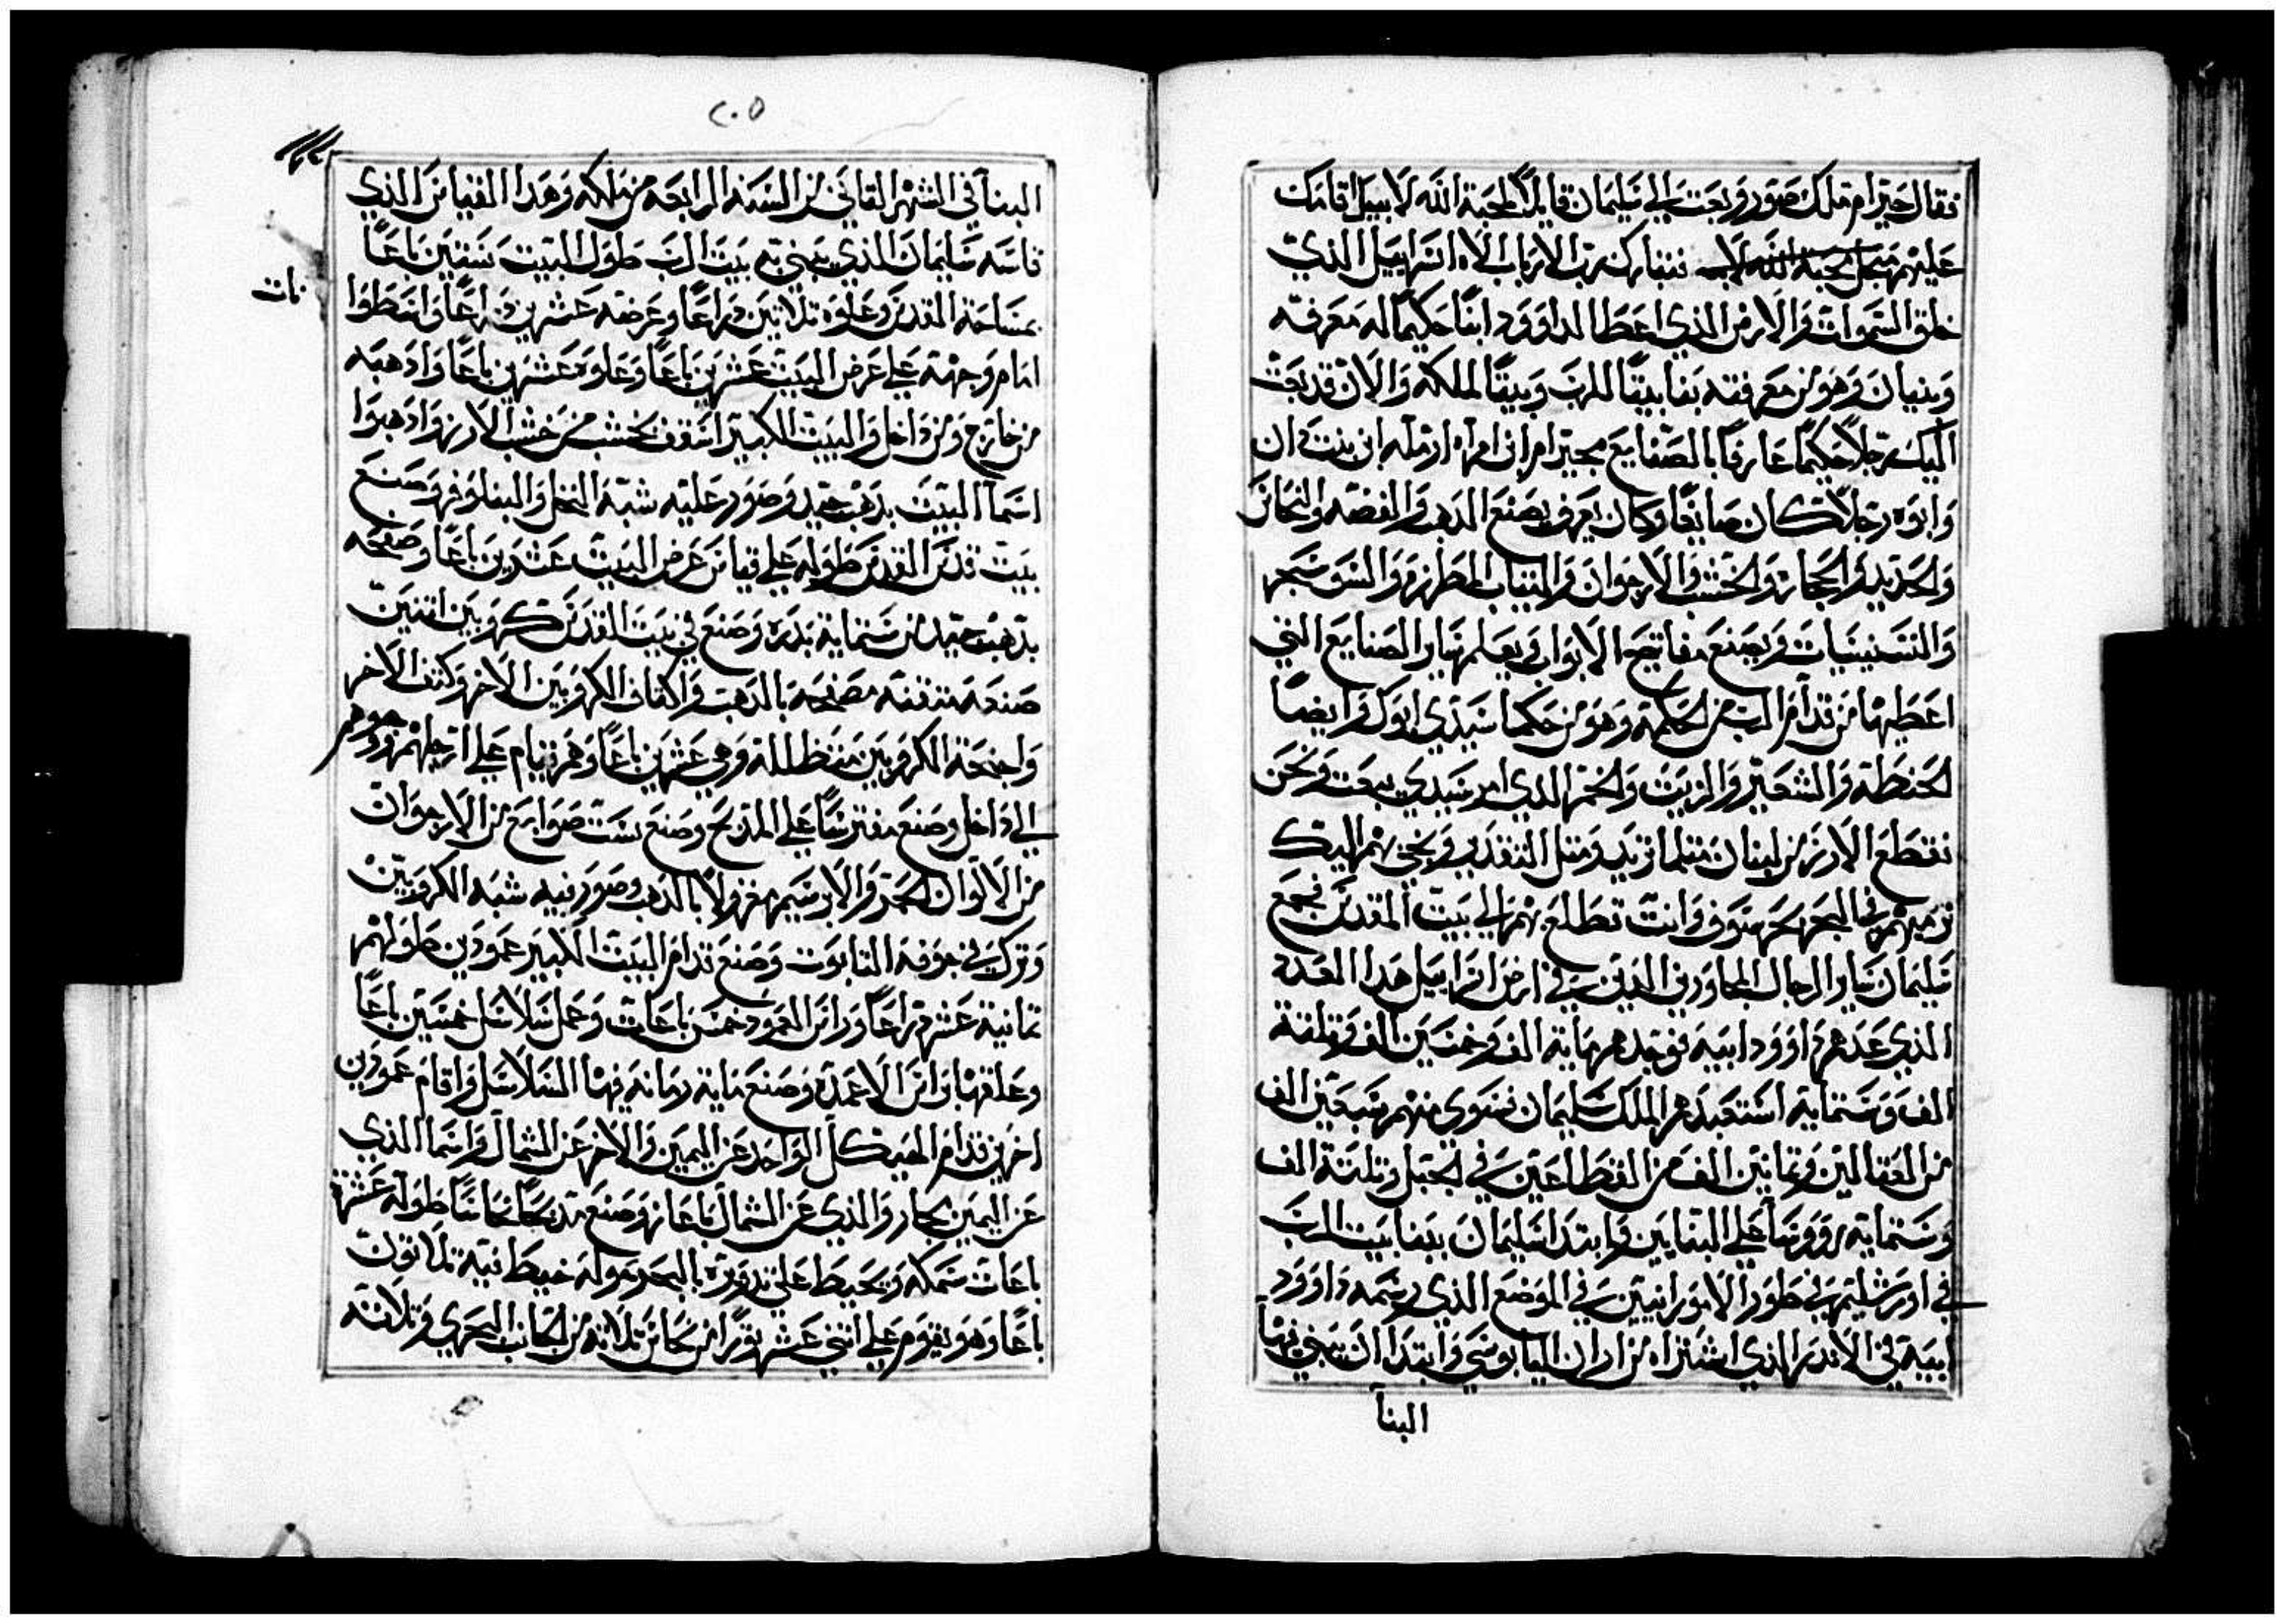 فقال حيرام ملك صور وبعث الي سليمان قايلا لمحبة الله لاسبيل اقامك
عليهم تبارك رب الارباب الاه اسراييل الذي
خلق السموات والارض الذي اعطا لداوود ابنا حكيما له معرفه
وبنيان وهو من معرفته بنا بيتا للرب وبيتا لملكه والان قد بعث
اليك رجلا حكيما عارفا بالصنايع حيرام ابن امراه ارمله ابن بنت دان
وابوه رجلا كان صايغا وكان يعرف بصنع الدهب والفضه والنحاس
والحديد والحجاره والخشب والارجوان والتياب المطرزه والسوسجر
ويصنع مفاتيح الابواب ويعلم ساير الصنايع التي
اعطيها من قدام الرب من الحكمة وهو من حكما سيدي ابوك وايضا
الحنطة والشعير والزيت والخمر الذي امر سيدي يبعت ونحن
نقطع الارز من لبنان متلما تريد ومتل التقدير ونجي بهم اليك
نرميهم في البحر بحر وانت تطلع بهم الي بيت المقدس فجمع
سليمان ساير الرجال المجاورين الدين في ارض اسراييل هدا العدة
الذي عدهم داوود ابيه فوجدهم ماية الف وخمسين الف وتلتة
الف وستماية استعبدهم الملك سليمان فسوي منهم سبعين الف
من العتالين وتمانين الف من القطاعين في الجبل وتلتة الف
وستماية رووسا علي البنايين وابتدا سليمان ببنا بيت الرب
في اورشليم في طور الامورانيين في الموضع الذي رسمه داوود
ابيه في الاندر الذي اشتراه من اران اليابوسي وابتدا ان يبني فيها
البنآ
٢٠٥
البنآ في الشهر التاني من السنة الرابعه من ملكه وهدا القياس الذي
قاسه سليمان الذي يبني به بيت الرب طول البيت ستين باعا
بمساحة القدس وعلوه تلاتين دراعا وعرضه عشرين دراعا
امام وجهة علي عرض البيت عشرين باعا وعلوه عشرين باعا وادهبه
من خارج ومن داخل والبيت الكبير اسقف بخشب من خشب الارز وادهبوا
اسما البيت بدهب جيد وصور عليه شبة النخل والبنلوفر وصنع
بيت قدس القدس طوله علي قياس عرض البيت عشرين باعا وصفحه
بدهب جيد من ستماية بدره وصنع في بيت القدس كروبين اتنين
صنعة متقنه مصفحه بالدهب واكتاف الكروبين الاخر وكتف الاخر
واجنحة الكروبين مظلله وهي عشرين باعا وهم قيام علي ارجلهم ووجوههم
الي داخل وصنع مفترشا علي المدبح وصنع ست صوابع من الارجوان
من الالوان الحمر والابرسيم مغزولا بالدهب وصور فيه شبه الكروبين
وترك في جوفه التابوت وصنع قدام البيت الكبير عمودين طولهم
تمانية عشر دراعا وراس العمود خمس باعات وعمل سلاسل خمسين باعا
وعلقها براس الاعمدة وصنع ماية رمانه فيها السلاسل واقام عمودين
اخرين قدام الهيكل الواحد عن اليمين والاخر عن الشمال واسما الذي
عن اليمين بجار والذي عن الشمال باعاز وصنع مدبحا نحاسا طوله عشرة
باعات سمكه ويحيط علي تدويره بالبحر حوله خيط فية تلاتون
باعا وهو يقوم علي اتني عشر تورا من نحاس تلاته من الجانب البحري وتلاتة